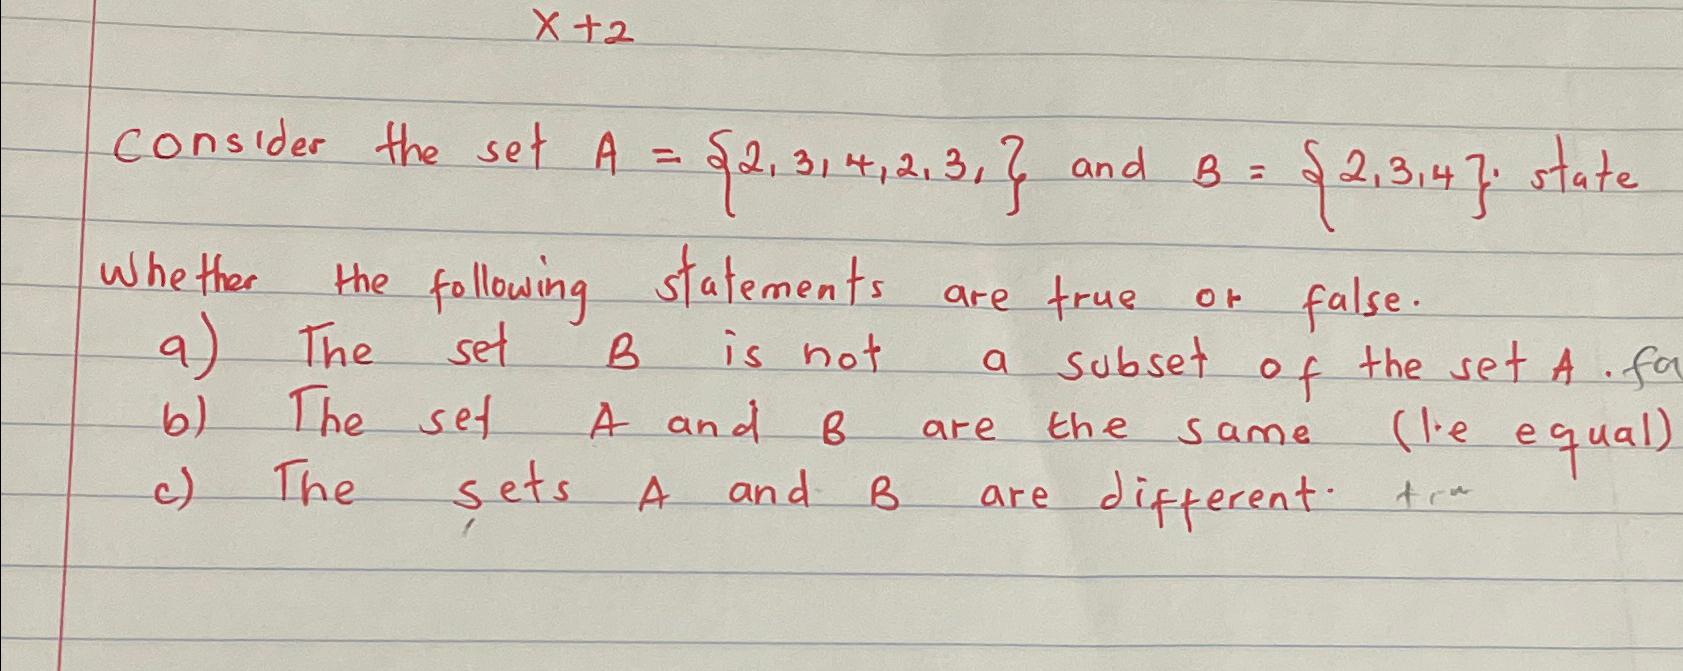 x+2
consider the set A = {2, 3, 4, 2, 3, } and B = {2,3,4}. state
Whether the following statements are true or false.
a) The set B is not a subset of the set A. fa
b) The set A and B are the same (i.e equal)
c) The sets A and B are different.